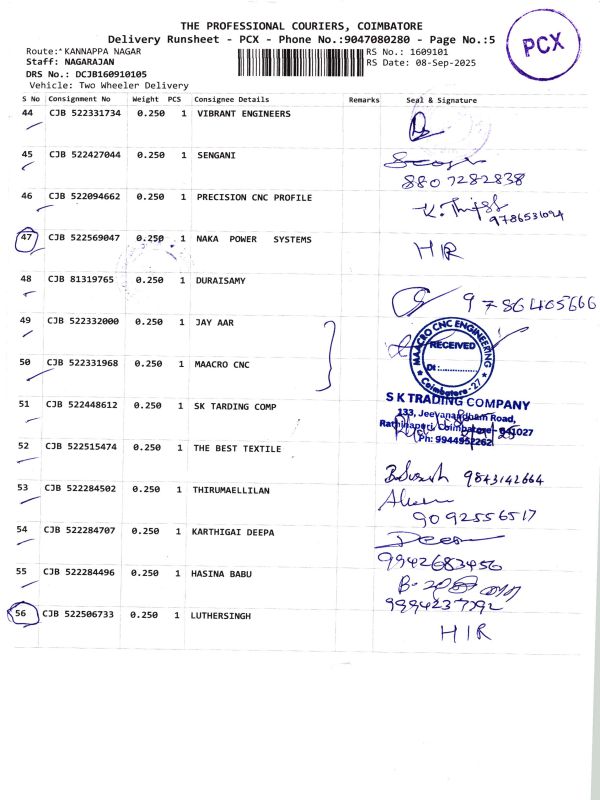 THE PROFESSIONAL COURIERS, COIMBATORE
Delivery Runsheet - PCX - Phone No.:9047080280 - Page No.:5
PCX
Route: KANNAPPA NAGAR
RS No.: 1609101
Staff: NAGARAJAN
RS Date: 08-Sep-2025
DRS No.: DCJB160910105
Vehicle: Two Wheeler Delivery
S No Consignment No Weight PCS Consignee Details Remarks Seal & Signature
44 CJB 522331734 0.250 1 VIBRANT ENGINEERS
45 CJB 522427044 0.250 1 SENGANI
8807282838
46 CJB 522094662 0.250 1 PRECISION CNC PROFILE
9786531094
47 CJB 522569047 0.250 1 NAKA POWER SYSTEMS
HIR
48 CJB 81319765 0.250 1 DURAISAMY
9786405666
49 CJB 522332000 0.250 1 JAY AAR
MAACRO CNC ENGINEERING
RECEIVED
Dt :..............
Coimbatore - 27
50 CJB 522331968 0.250 1 MAACRO CNC
51 CJB 522448612 0.250 1 SK TARDING COMP
S K TRADING COMPANY
133, Jeevanandham Road,
Rathinapuri, Coimbatore - 641027
Ph: 9944952262
52 CJB 522515474 0.250 1 THE BEST TEXTILE
9843142664
53 CJB 522284502 0.250 1 THIRUMAELLILAN
9092556517
54 CJB 522284707 0.250 1 KARTHIGAI DEEPA
9942683456
55 CJB 522284496 0.250 1 HASINA BABU
9994237792
56 CJB 522506733 0.250 1 LUTHERSINGH
HIR